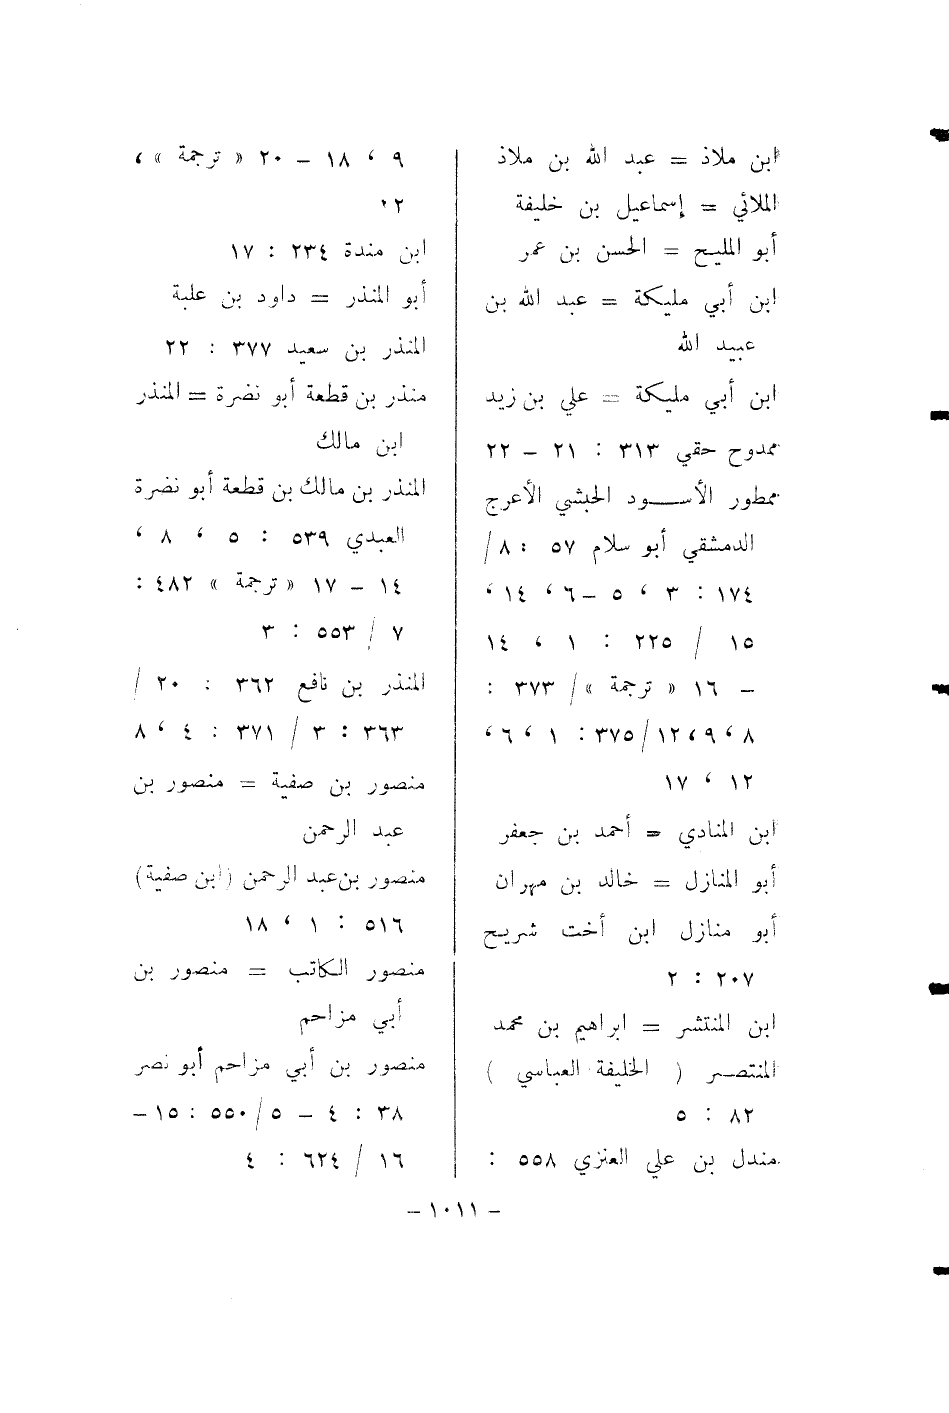 ابن ملاذ = عبد الله بن ملاذ
الملائي = إسماعيل بن خليفة
أبو المليح = الحسن بن عمر
ابن أبي مليكة = عبد الله بن
عبيد الله
ابن أبي مليكة = علي بن زيد
ممدوح حقي ٣١٣ : ٢١ – ٢٢
ممطور الأسود الحبشي الأعرج
الدمشقي أبو سلام ٥٧ : ٨/
١٧٤ : ٣ ، ٥ – ٦ ، ١٤ ،
١٥ / ٢٢٥ : ١ ، ١٤
– ١٦ « ترجمة »/ ٣٧٣ :
٨ ، ٩ ، ١٢/ ٣٧٥ : ١ ، ٦ ،
١٢ ، ١٧
ابن المنادي = أحمد بن جعفر
أبو المنازل = خالد بن مهران
أبو منازل ابن أخت شريح
٢٠٧ : ٢
ابن المنتشر = ابراهيم بن محمد
المنتصر ( الخليفة العباسي )
٨٢ : ٥
مندل بن علي العنزي ٥٥٨ :
٩ ، ١٨ – ٢٠ « ترجمة » ،
ابن مندة ٢٣٤ : ١٧
أبو المنذر = داود بن علبة
المنذر بن سعيد ٣٧٧ : ٢٢
منذر بن قطعة أبو نضرة = المنذر
ابن مالك
المنذر بن مالك بن قطعة أبو نضرة
العبدي ٥٣٩ : ٥ ، ٨ ،
١٤ – ١٧ « ترجمة » ٤٨٢ :
٧ / ٥٥٣ : ٣
المنذر بن نافع ٣٦٢ : ٢٠ /
٣٦٣ : ٣ / ٣٧١ : ٤ ، ٨
منصور بن صفية = منصور بن
عبد الرحمن
منصور بن عبد الرحمن (ابن صفية)
٥١٦ : ١ ، ١٨
منصور الكاتب = منصور بن
أبي مزاحم
منصور بن أبي مزاحم أبو نصر
٣٨ : ٤ – ٥ / ٥٥٠ : ١٥ –
١٦ / ٦٢٤ : ٤
– ١٠١١ –